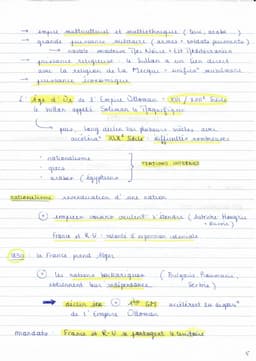 → empire multiculturel et multiethnique (turc, arabe)
→ grande puissance militaire (armée + soldats puissants)
→ navale moderne Mer Noire + Est Méditerranée
→ puissance religieuse : le sultan a un lien direct
avec la religion de la Mecque - unifie musulmans
→ puissance économique
L' Age d'Or de l'Empire Ottoman : XVI / XVIIe Siècle
le sultan appelé Soliman le Magnifique
puis, long déclin
XIXe Siècle : difficultés nombreuses
• nationalisme
• grecs
• arabes (égyptiens)
nationalisme : revendication d'une nation
empires voisins veulent s'étendre (Autriche Hongrie
+ Russie)
France et R-U : volonté d'expansion coloniale
1830 : la France prend Alger
les nations balkaniques (Bulgarie Roumanie,
obtiennent leur indépendance. Serbie)
→ déclin 1re GM accélèrent la dispar°
de l'Empire Ottoman
mandats : France et R-U se partagent le territoire